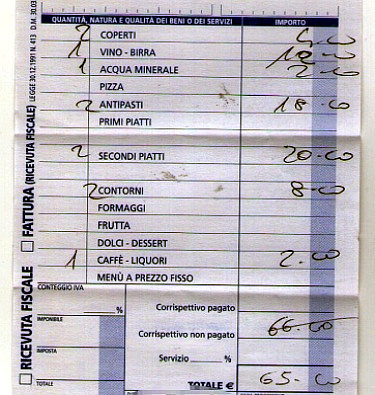 LEGGE 30.12.1991 N. 413 D.M. 30.03
RICEVUTA FISCALE FATTURA (RICEVUTA FISCALE)
QUANTITÀ, NATURA E QUALITÀ DEI BENI O DEI SERVIZI IMPORTO
2 COPERTI 4-00
1 VINO - BIRRA 12-00
1 ACQUA MINERALE 2-00
PIZZA
2 ANTIPASTI 18-00
PRIMI PIATTI
2 SECONDI PIATTI 20-00
2 CONTORNI 8-00
FORMAGGI
FRUTTA
DOLCI - DESSERT
1 CAFFÈ - LIQUORI 2-00
MENÙ A PREZZO FISSO
CONTEGGIO IVA
% Corrispettivo pagato
IMPONIBILE 66-00
Corrispettivo non pagato
IMPOSTA
Servizio %
TOTALE TOTALE € 65-00